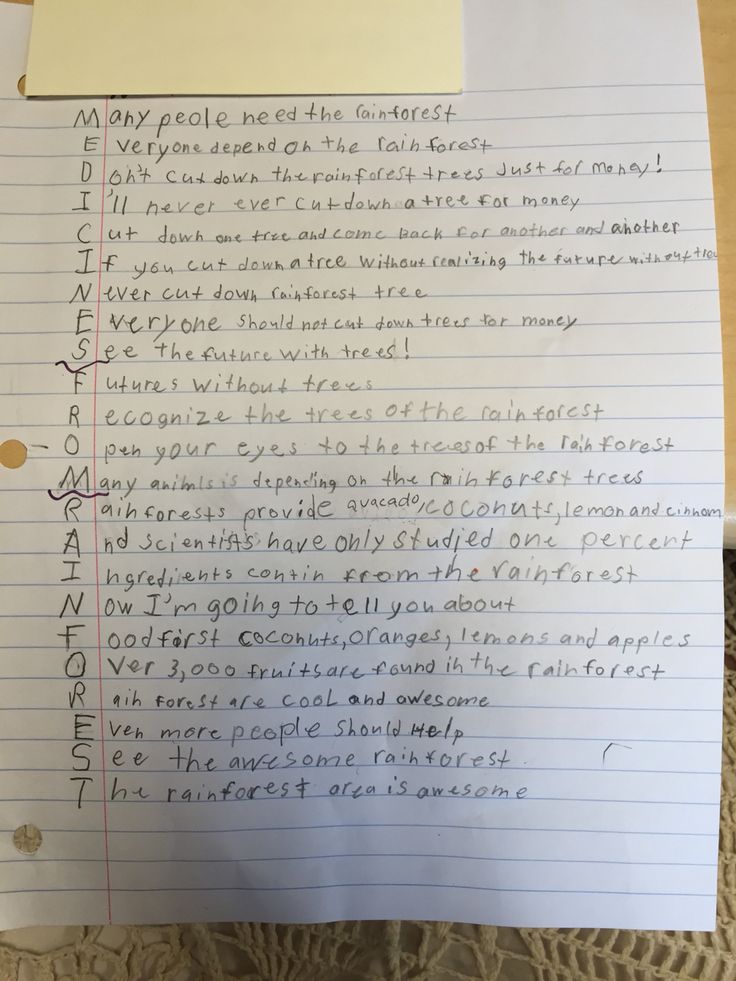 Many peole need the rainforest
Everyone depend on the rain forest
Don't cut down the rainforest trees Just for money!
I'll never ever cut down a tree for money
Cut down one tree and come back for another and another
If you cut down a tree without realizing the future without tree
Never cut down rainforest tree
Everyone should not cut down trees for money
See the future with trees!
Futures without trees
Recognize the trees of the rainforest
Open your eyes to the trees of the rainforest
Many animls is depending on the rainforest trees
Rainforests provide avacado, coconuts, lemon and cinnam
And scientists have only studied one percent
Ingredients contin from the rainforest
Now I'm going to tell you about
Food first coconuts, oranges, lemons and apples
Over 3,000 fruits are found in the rainforest
Rain forest are cool and awesome
Even more people should Help
See the awesome rainforest.
The rainforest area is awesome